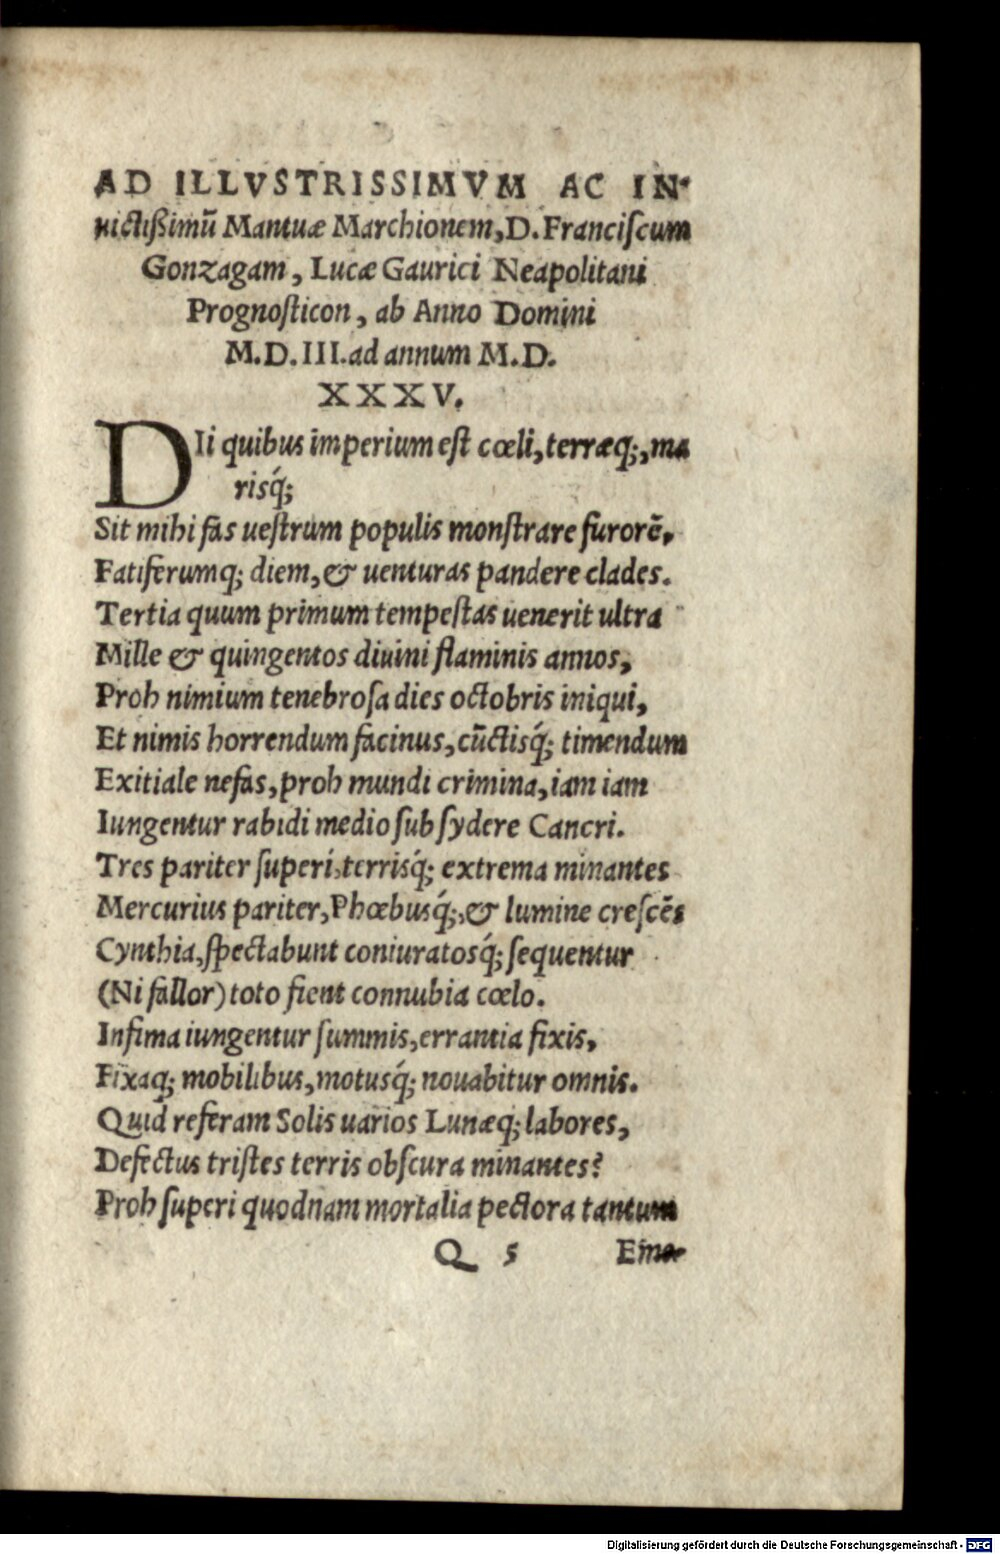 AD ILLVSTRISSIMVM AC IN-
uictißimũ Mantuæ Marchionem, D. Franciſcum
Gonzagam, Lucæ Gaurici Neapolitani
Prognoſticon, ab Anno Domini
M.D.III. ad annum M.D.
XXXV.
DIi quibus imperium eſt cœli, terræq;, ma
risq́;
Sit mihi fas ueſtrum populis monſtrare furorẽ,
Fatiferumq; diem, & uenturas pandere clades.
Tertia quum primum tempeſtas uenerit ultra
Mille & quingentos diuini flaminis annos,
Proh nimium tenebroſa dies octobris iniqui,
Et nimis horrendum facinus, cũctisq́; timendum
Exitiale nefas, proh mundi crimina, iam iam
Iungentur rabidi medio ſub ſydere Cancri.
Tres pariter ſuperi, terrisq́; extrema minantes
Mercurius pariter, Phœbusq́;, & lumine creſcẽs
Cynthia, ſpectabunt coniuratosq́; ſequentur
(Ni fallor) toto fient connubia cœlo.
Infima iungentur ſummis, errantia fixis,
Fixaq; mobilibus, motusq́; nouabitur omnis.
Quid referam Solis uarios Lunæq; labores,
Defectus triſtes terris obſcura minantes?
Proh ſuperi quodnam mortalia pectora tantum
Q 5 Eme-
Digitalisierung gefördert durch die Deutsche Forschungsgemeinschaft - DFG